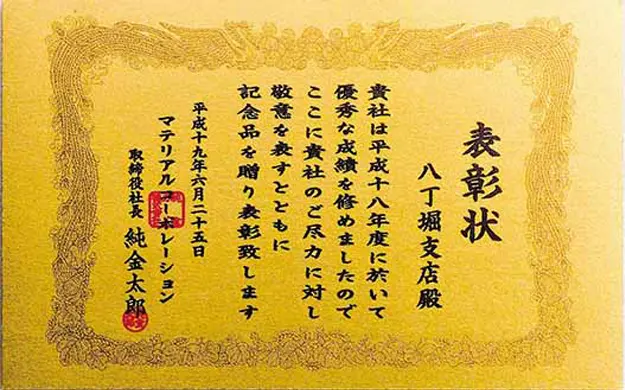 表彰状
八丁堀支店殿
貴社は平成十八年度に於いて
優秀な成績を修めましたので
ここに貴社のご尽力に対し
敬意を表すとともに
記念品を贈り表彰致します
平成十九年六月二十五日
マテリアルコーポレーション
取締役社長 純金太郎